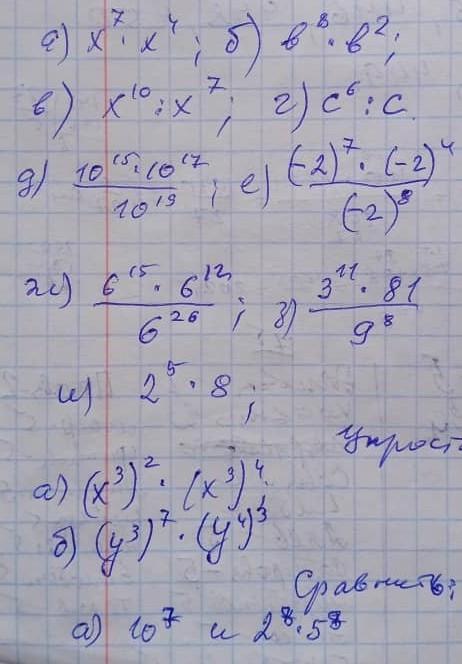 а) x⁷ · x⁴ ; б) b⁸ · b² ;
в) x¹⁰ : x⁷ ; г) c⁶ : c
д) (10¹⁵ · 10¹⁷) / 10¹⁹ ; е) ((-2)⁷ · (-2)⁴) / (-2)⁸
ж) (6¹⁵ · 6¹²) / 6²⁶ ; з) (3¹¹ · 81) / 9⁸
и) 2⁵ · 8 ;
Упрост
а) (x³)² · (x³)⁴ ;
б) (y³)⁷ · (y⁴)³
Сравнить:
а) 10⁷ и 2⁸ · 5⁸